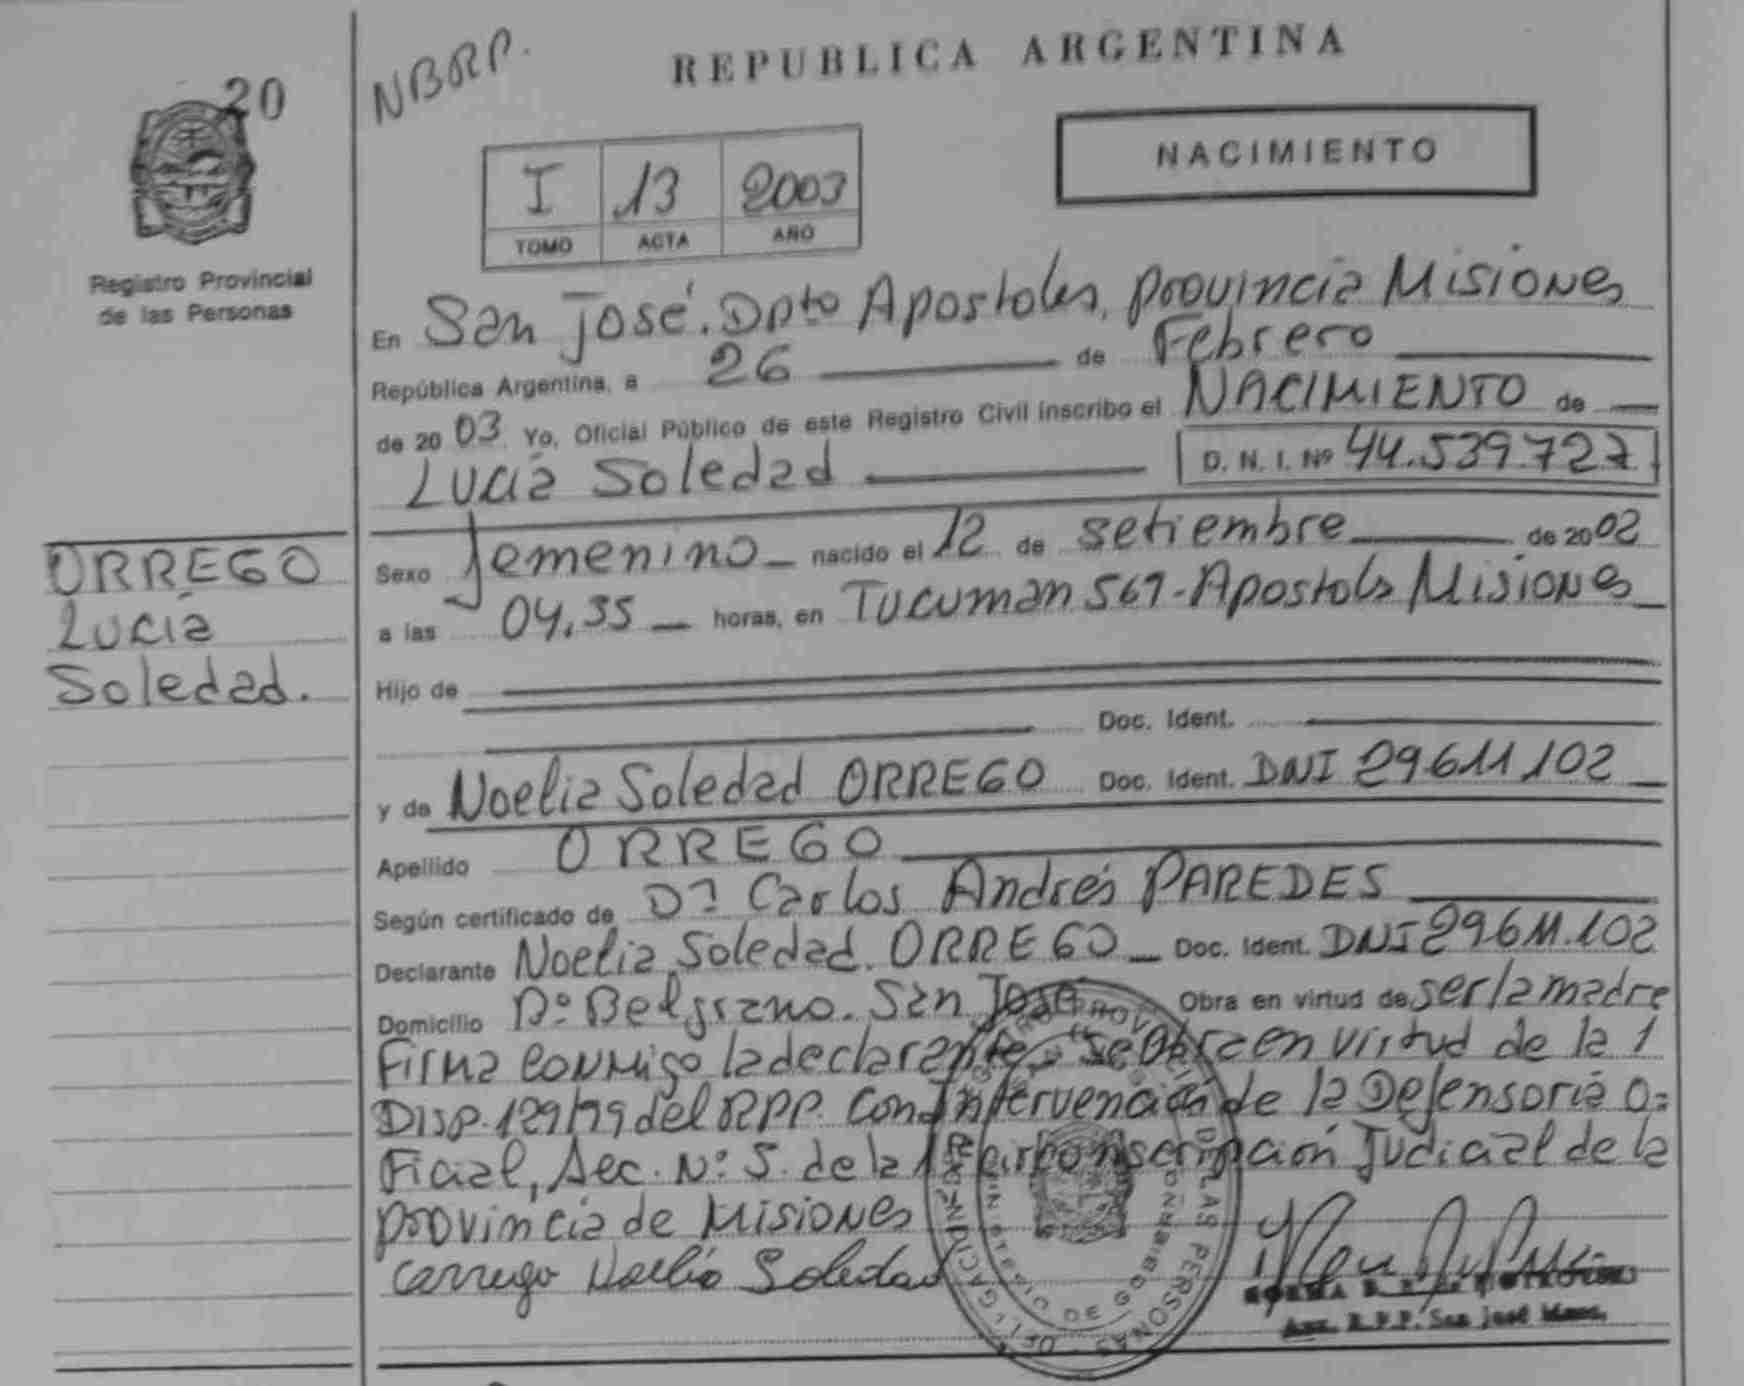 20
Registro Provincial
de las Personas
ORREGO
Lucía
Soledad.
NBRP.
REPUBLICA ARGENTINA
NACIMIENTO
I 13 2003
TOMO ACTA AÑO
En San José. Dpto Apostoles, provincia Misiones
República Argentina, a 26 de Febrero
de 2003 Yo, Oficial Público de este Registro Civil inscribo el NACIMIENTO de
Lucía Soledad D. N. I. Nº 44.539.727
Sexo femenino nacido el 12 de setiembre de 2002
a las 04,35 horas, en Tucuman 567-Apostoles Misiones
Hijo de
Doc. Ident.
y de Noelia Soledad ORREGO Doc. Ident. DNI 29611102
Apellido ORREGO
Según certificado de Dr Carlos Andrés PAREDES
Declarante Noelia Soledad. ORREGO Doc. Ident. DNI 29611.102
Domicilio Bº Belgrano. San José Obra en virtud de ser la madre
Firma conmigo la declarante. se obra en virtud de la
Disp. 129/99 del RPP. Con Intervención de la Defensoria O=
Ficial, Sec. Nº 5. de la circonscripación Judicial de la
provincia de Misiones
Orrego Noelia Soledad
R.P.P. San José Mnes.